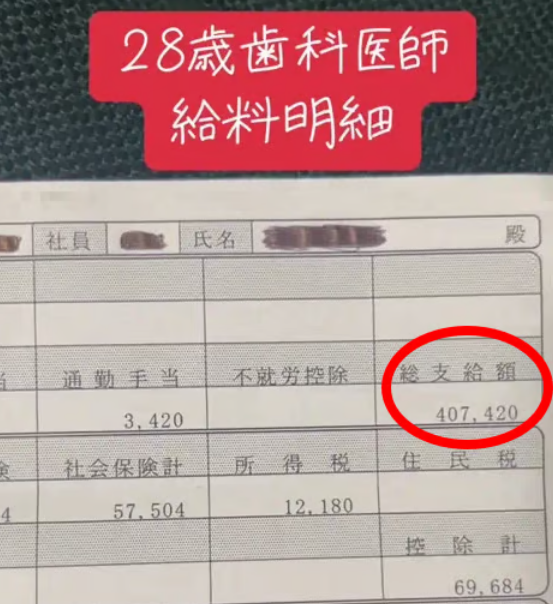 28歳歯科医師
給料明細
社員 氏名 殿
当 通勤手当 不就労控除 総支給額
3,420 407,420
険 社会保険計 所得税 住民税
4 57,504 12,180
控除計
69,684